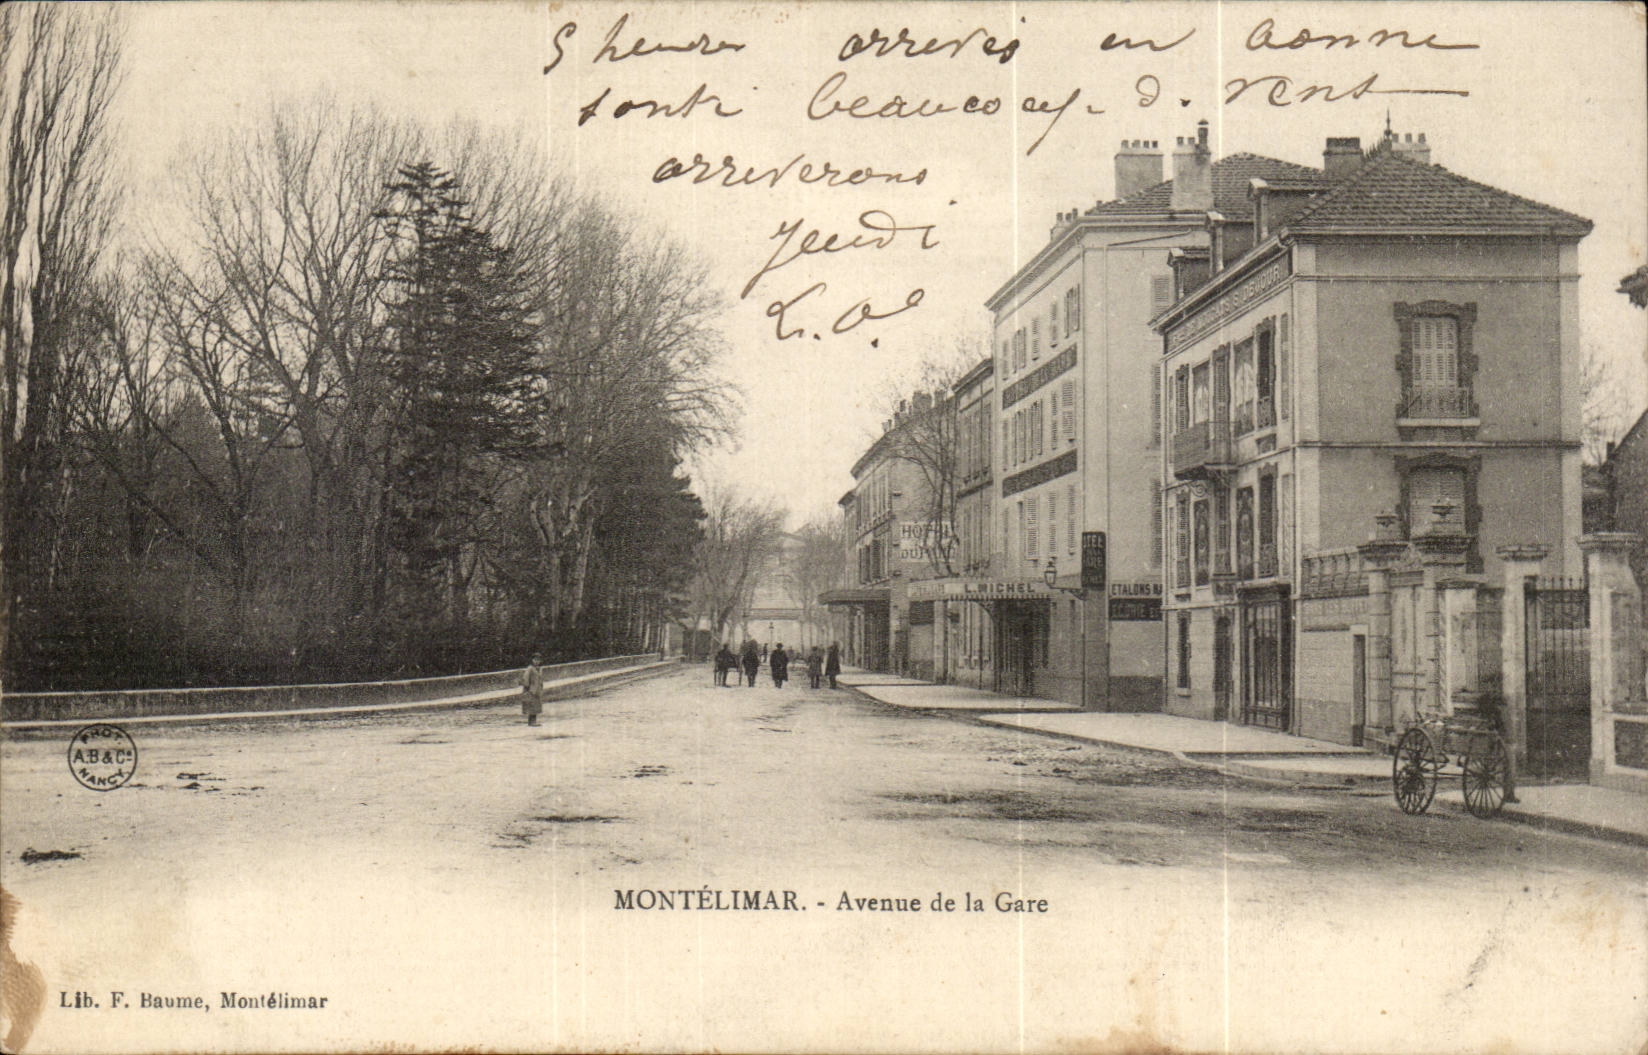 5 heures arrivés en bonne
santé beaucoup d. vent
arriverons
Jeudi
HOTEL
L. MICHEL
ETALONS
PHOT.
A.B & Cie
NANCY
MONTÉLIMAR. - Avenue de la Gare
Lib. F. Baume, Montélimar